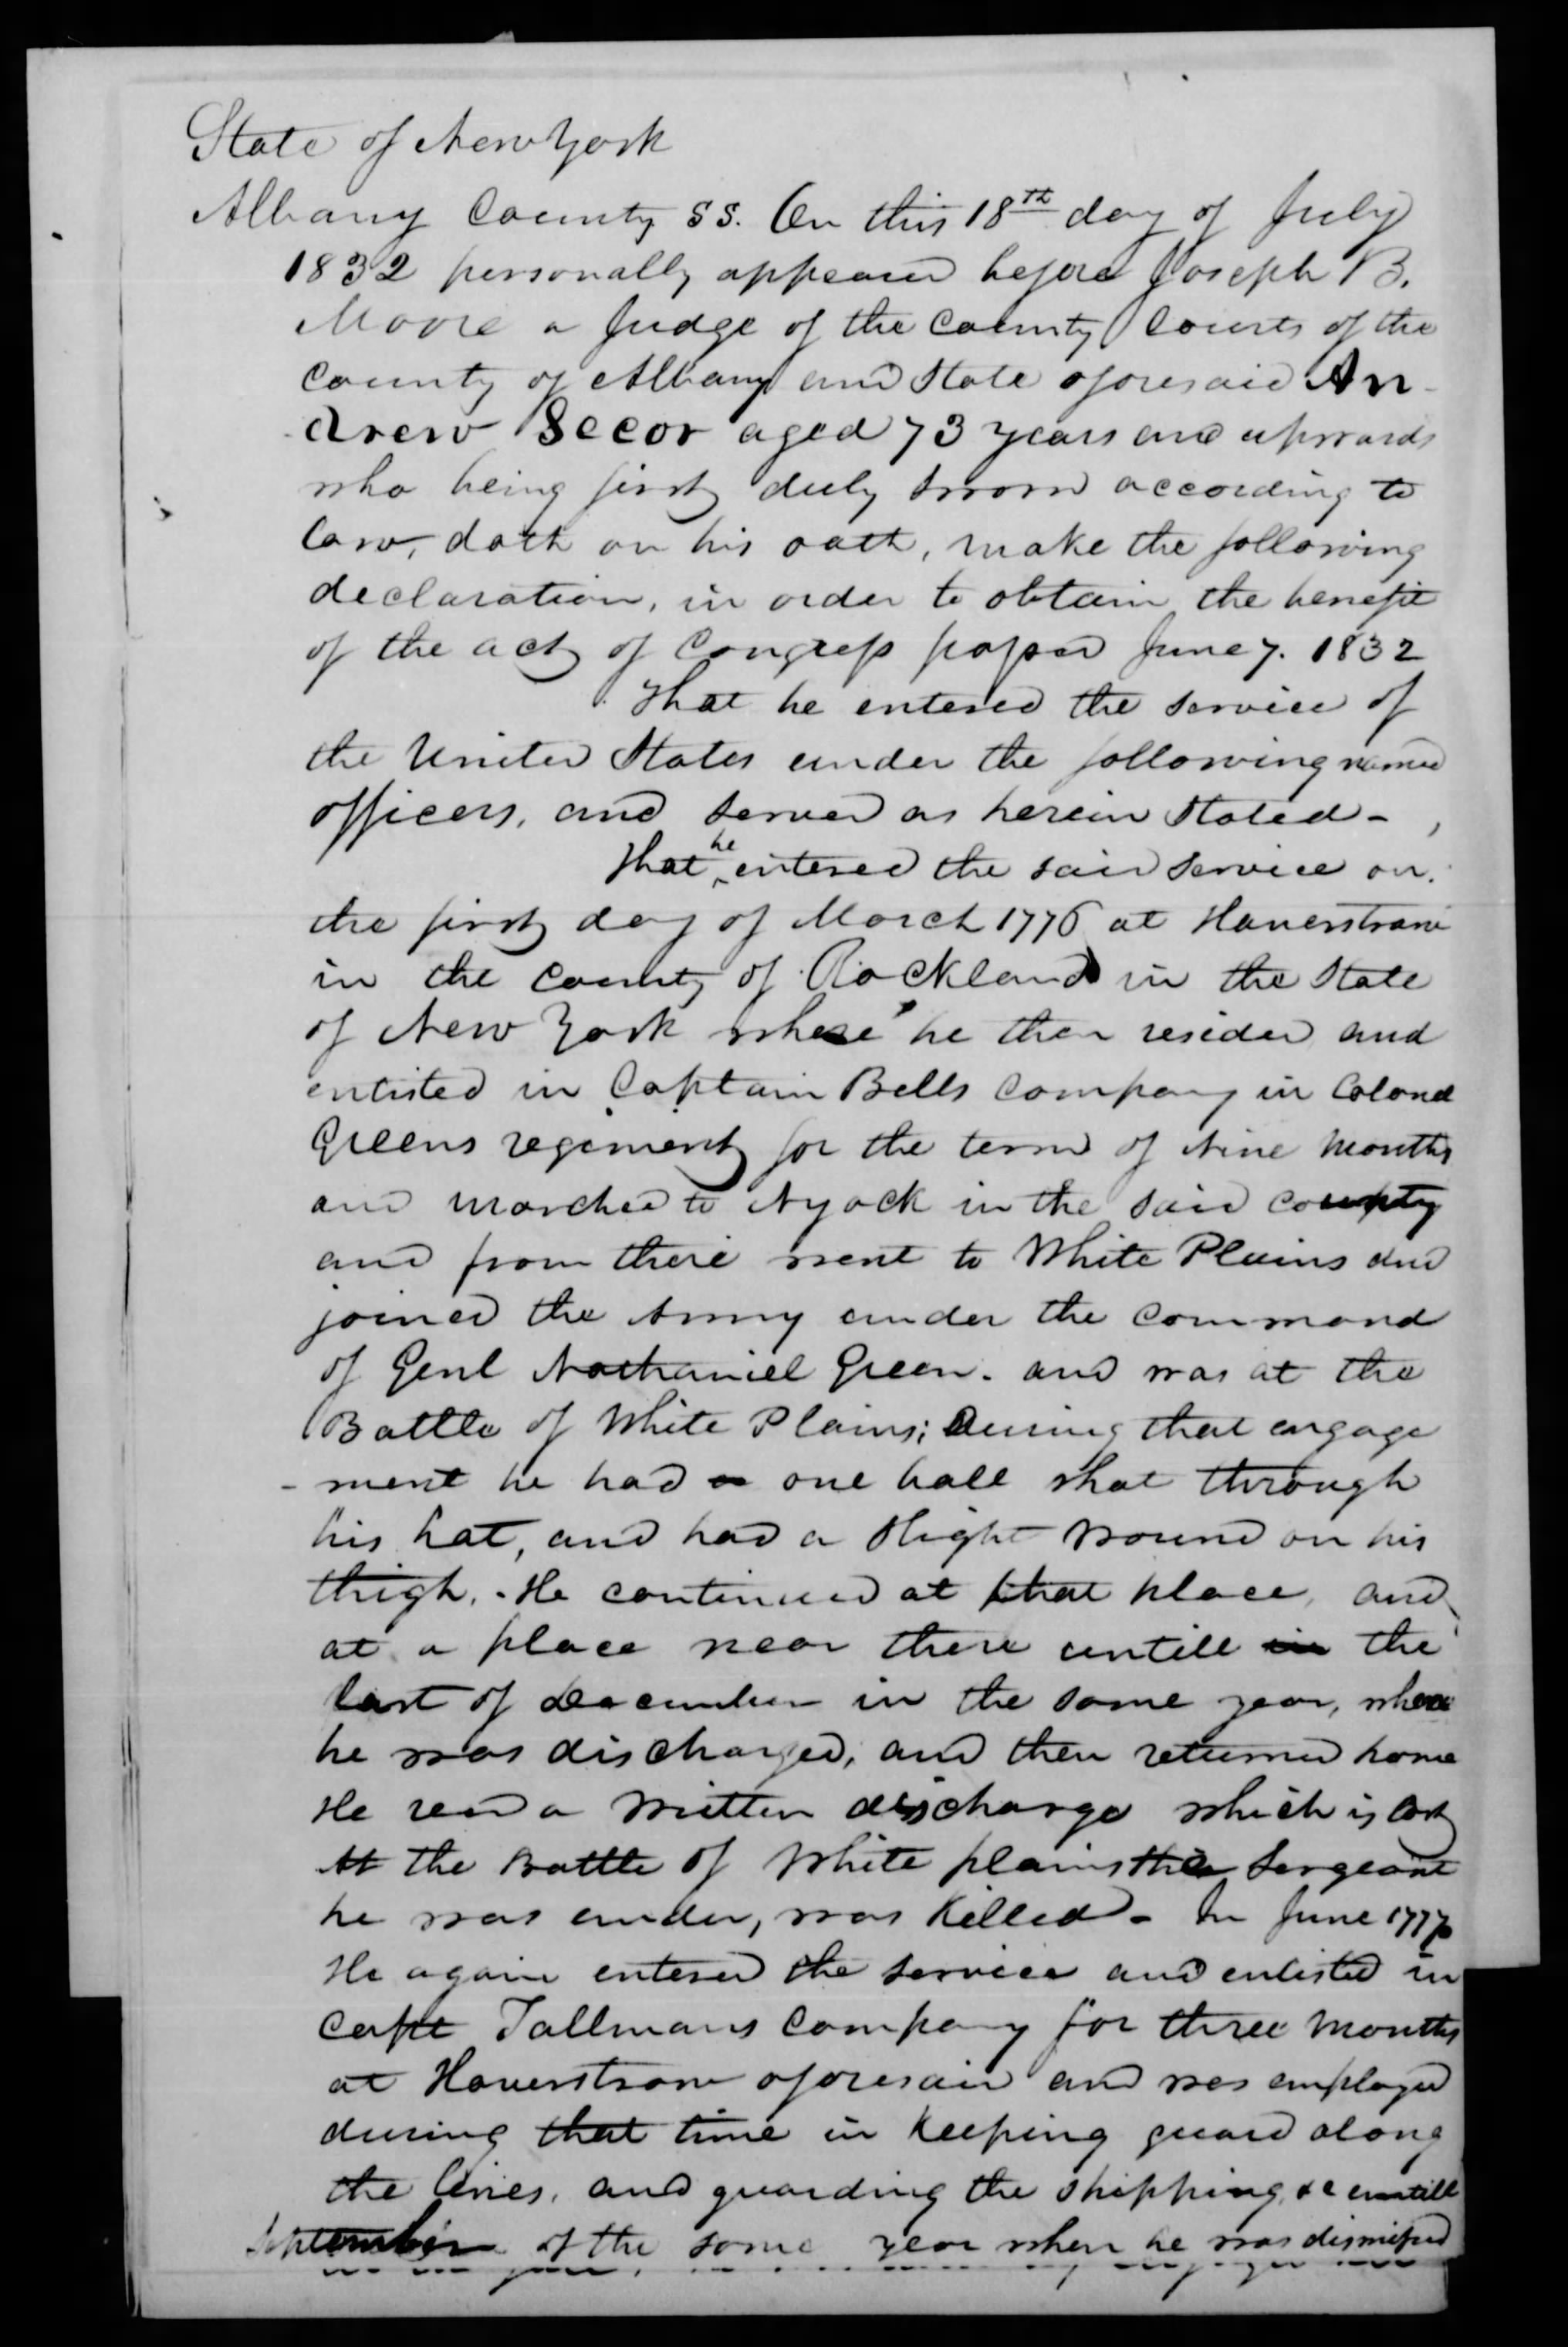 State of New York
Albany County SS. On this 18th day of July
1832 personally appeared before Joseph B.
Moore a Judge of the County Courts of the
County of Albany and State aforesaid An-
-drew Secor aged 73 years and upwards
who being first duly sworn according to
law, doth on his oath, make the following
declaration, in order to obtain the benefit
of the act of Congress passed June 7. 1832
That he entered the service of
the United States under the following named
officers, and served as herein Stated -
That he entered the said service on
the first day of March 1776 at Haverstraw
in the County of Rockland in the State
of New York where he then resided and
enlisted in Captain Bells Company in Colonel
Greens regiment for the term of Nine Months
and marched to Nyack in the said county
and from there went to White Plains and
joined the Army under the command
of Genl Nathaniel Green. and was at the
Battle of White Plains; During that engage
-ment he had a one ball shot through
his hat, and had a slight wound on his
thigh. - He continued at that place, and
at a place near there untill in the
last of December in the same year, when
he was discharged, and then returned home
He recd a written discharge which is lost
At the Battle of White plains the Sergeant
he was under, was Killed - In June 1777
He again entered the service and enlisted in
Capt Tallmans Company for three Months
at Haverstraw aforesaid and was employed
during that time in keeping guard along
the lines, and guarding the shipping, &c untill
September of the same year when he was dismissed